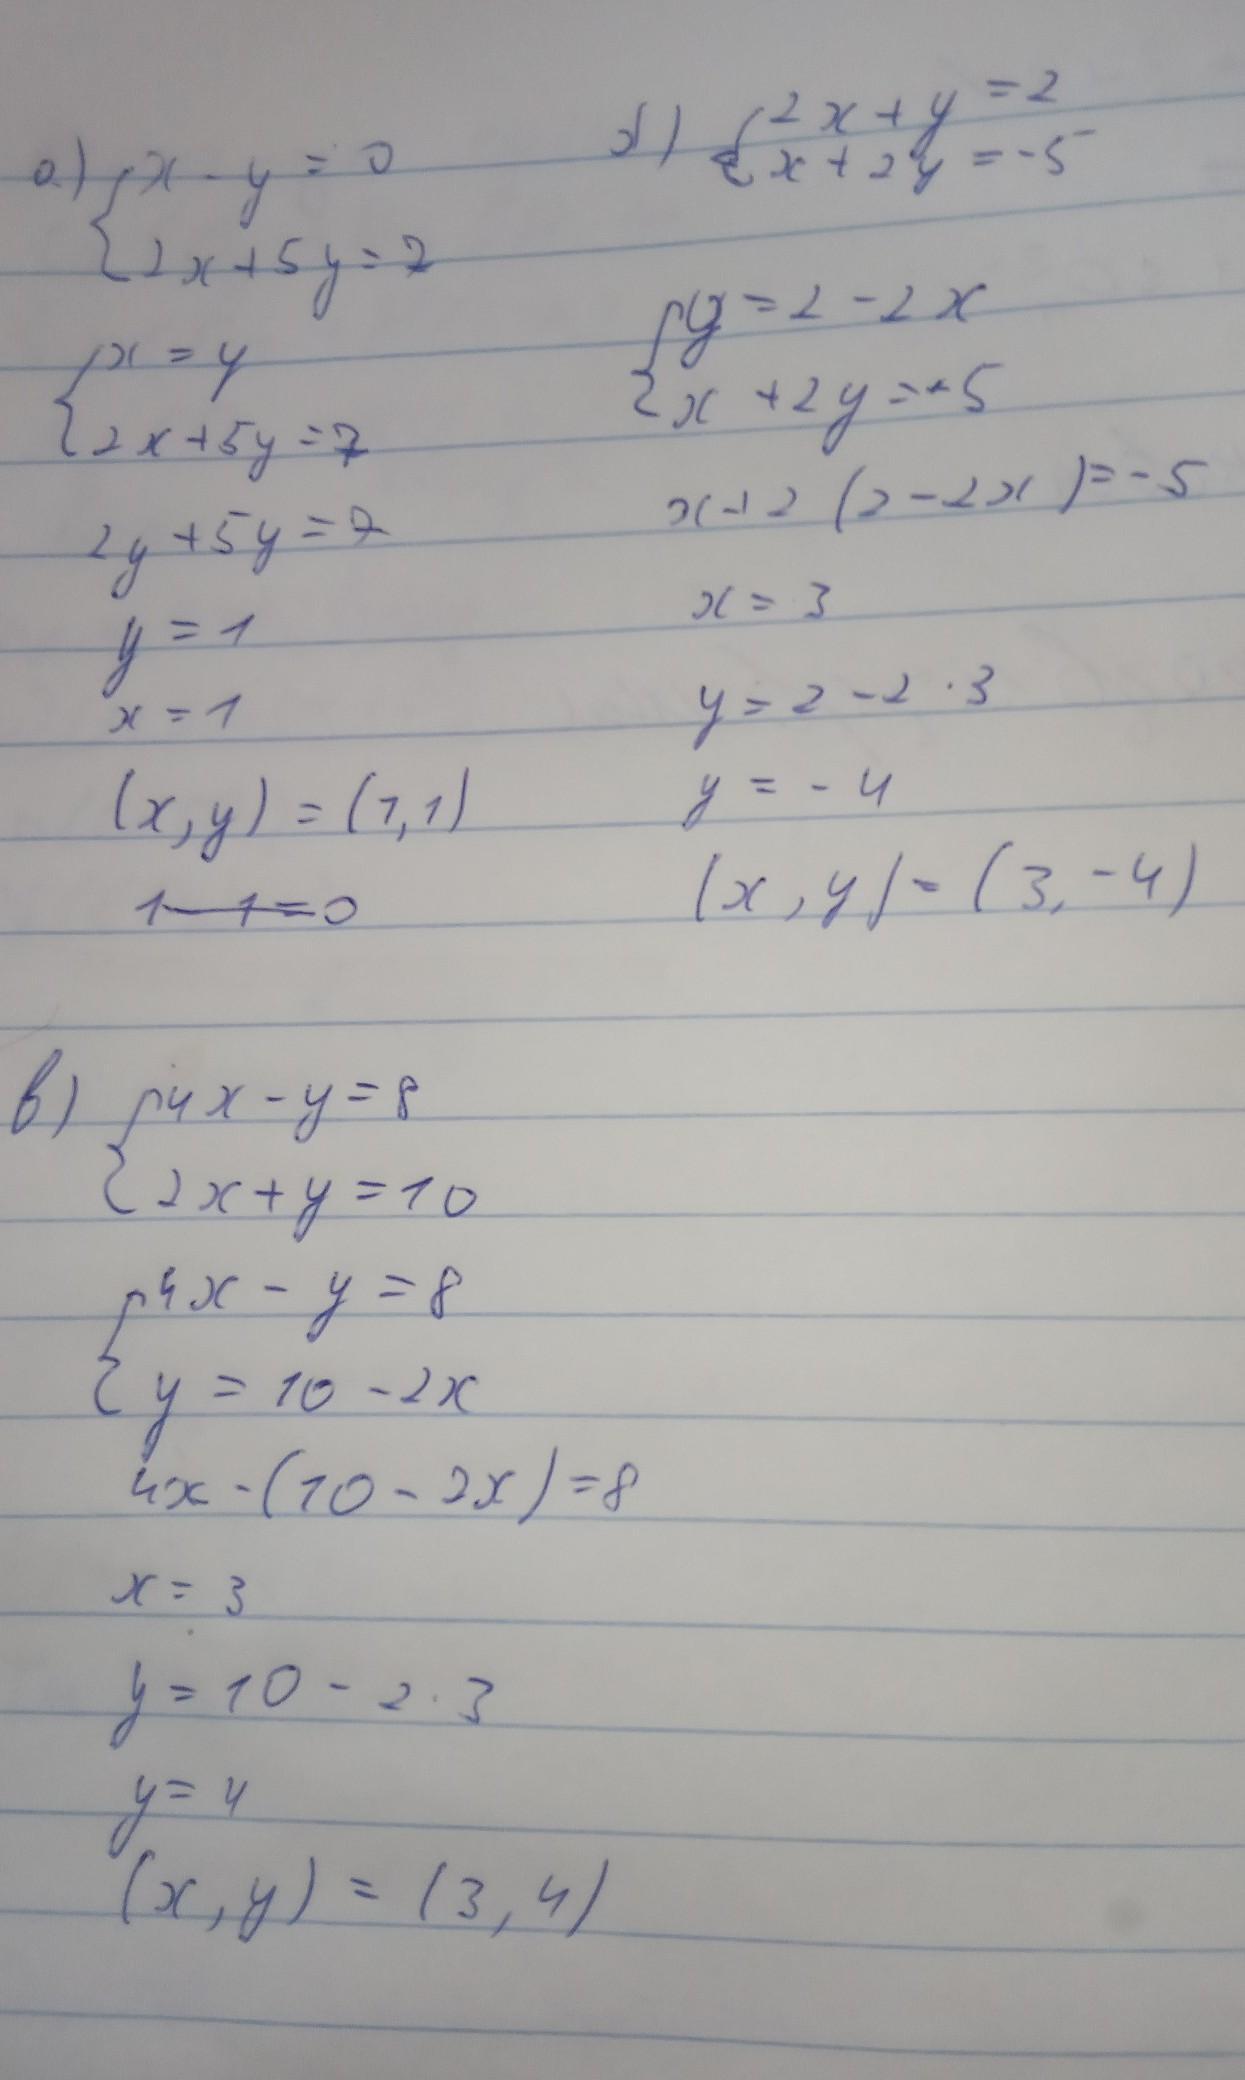 а) { x - y = 0
2x + 5y = 7
{ x = y
2x + 5y = 7
2y + 5y = 7
y = 1
x = 1
(x, y) = (1, 1)
1 - 1 = 0
б) { 2x + y = 2
x + 2y = -5
{ y = 2 - 2x
x + 2y = -5
x + 2 (2 - 2x) = -5
x = 3
y = 2 - 2 · 3
y = -4
(x, y) = (3, -4)
в) { 4x - y = 8
2x + y = 10
{ 4x - y = 8
y = 10 - 2x
4x - (10 - 2x) = 8
x = 3
y = 10 - 2 · 3
y = 4
(x, y) = (3, 4)